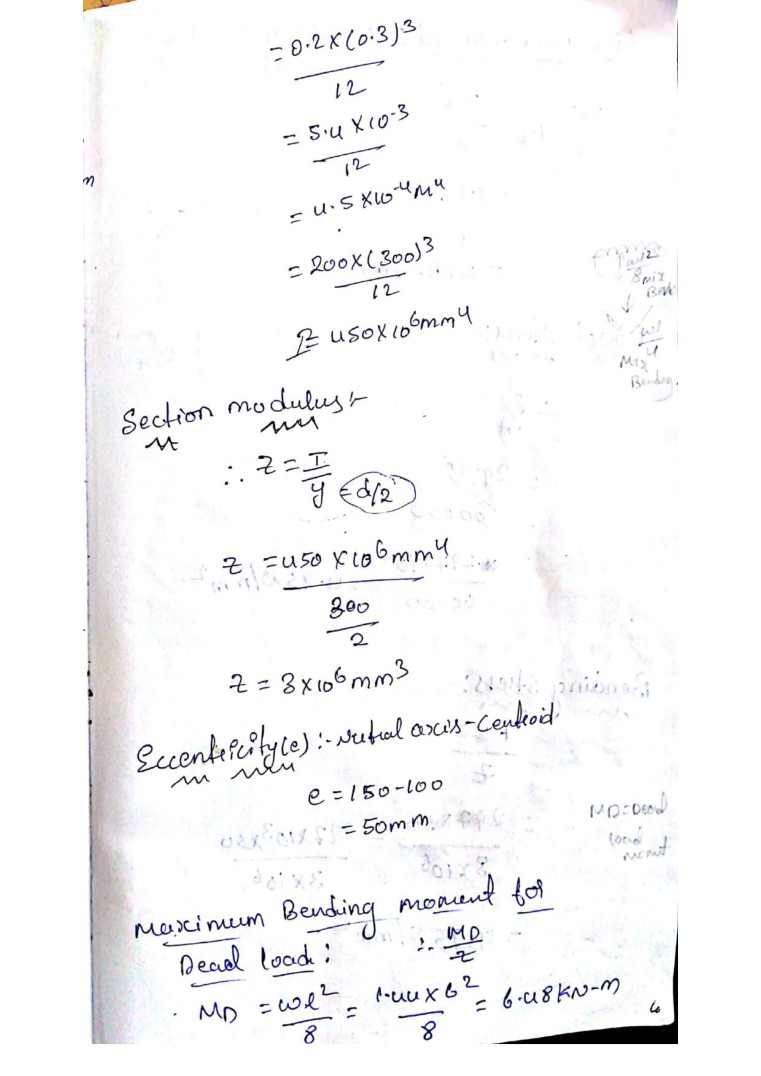 = 0.2 x (0.3)^3
12
= 5.4 x 10^-3
12
= 4.5 x 10^-4 M^4
= 200 x (300)^3
12
I = 450 x 10^6 mm^4
wl^2
8 mix
Bend
wl
4
Mix
Bending.
Section modulus :-
∴ Z = I
y = d/2
Z = 450 x 10^6 mm^4
300
2
Z = 3 x 10^6 mm^3
Eccentricity (e) :- Nutral axis - Centroid
e = 150 - 100
= 50mm.
MD = Dead
load
Maximum Bending moment for
Dead load :
∴ MD
Z
MD = wl^2 = 1.44 x 6^2 = 6.48 KN-m
8 8